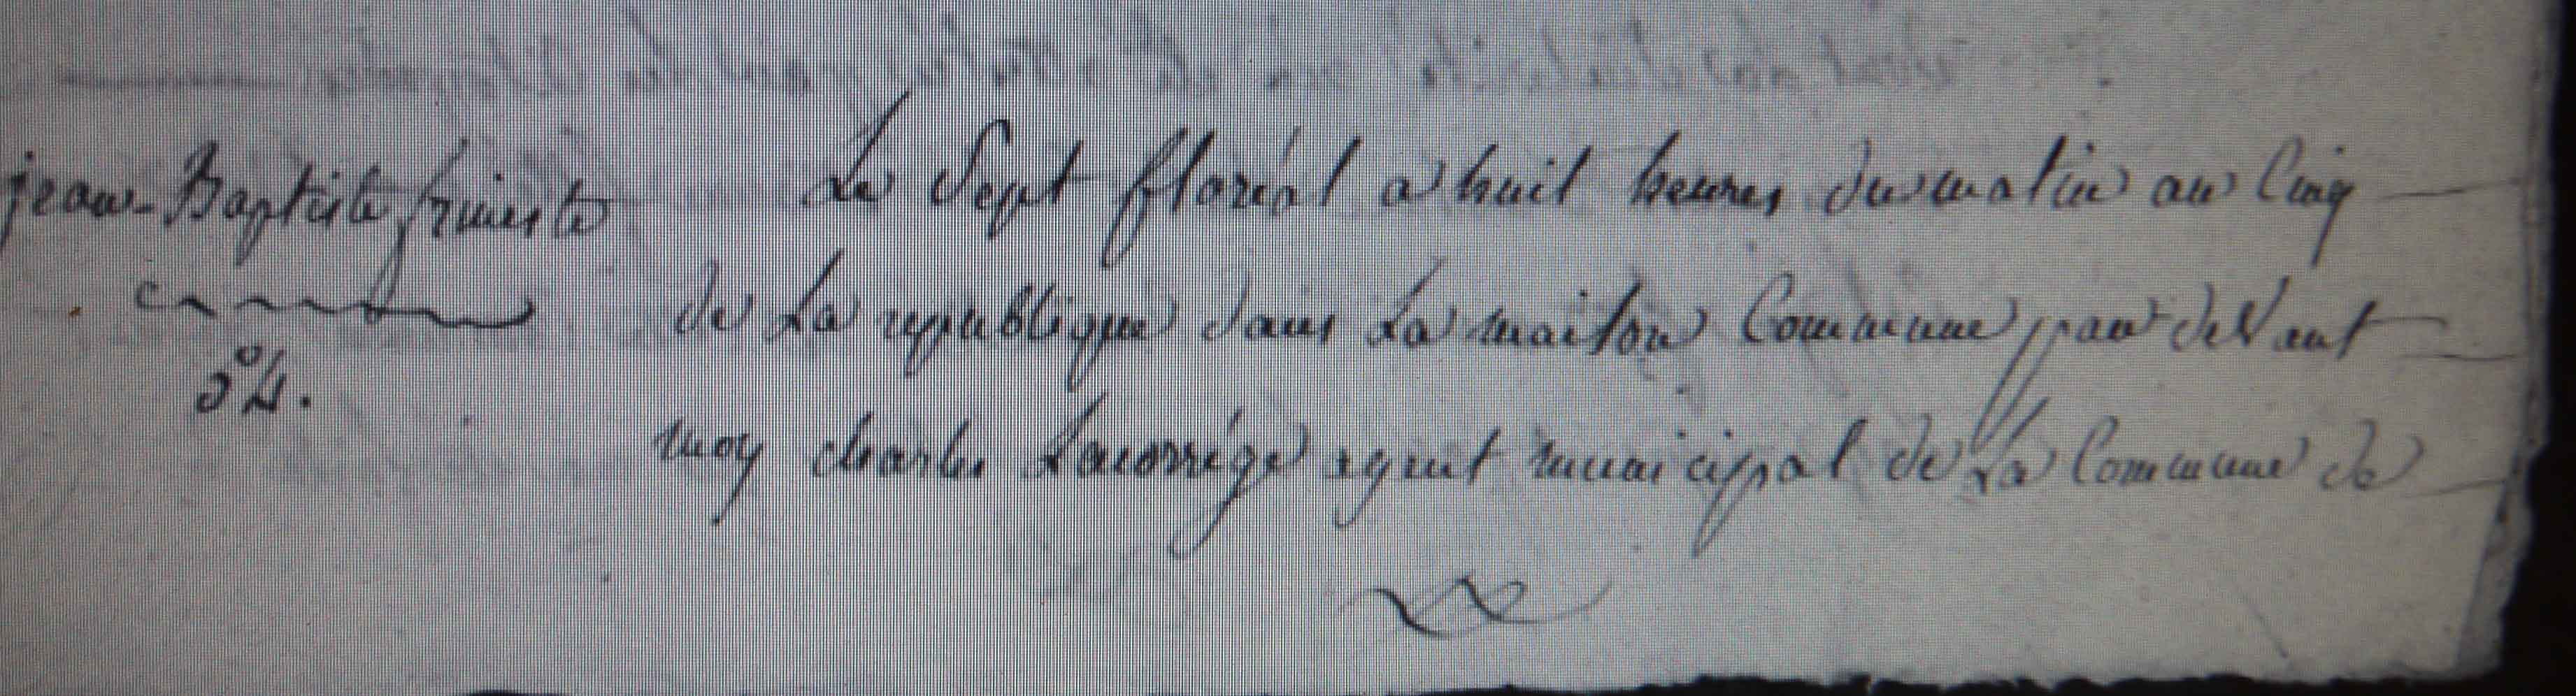 jean-Baptiste
Le Sept floréal a huit heures du matin au Cinq
de La republique dans La maison Commune par deVant
moy charles Lacorrége agent municipal de La Commune de